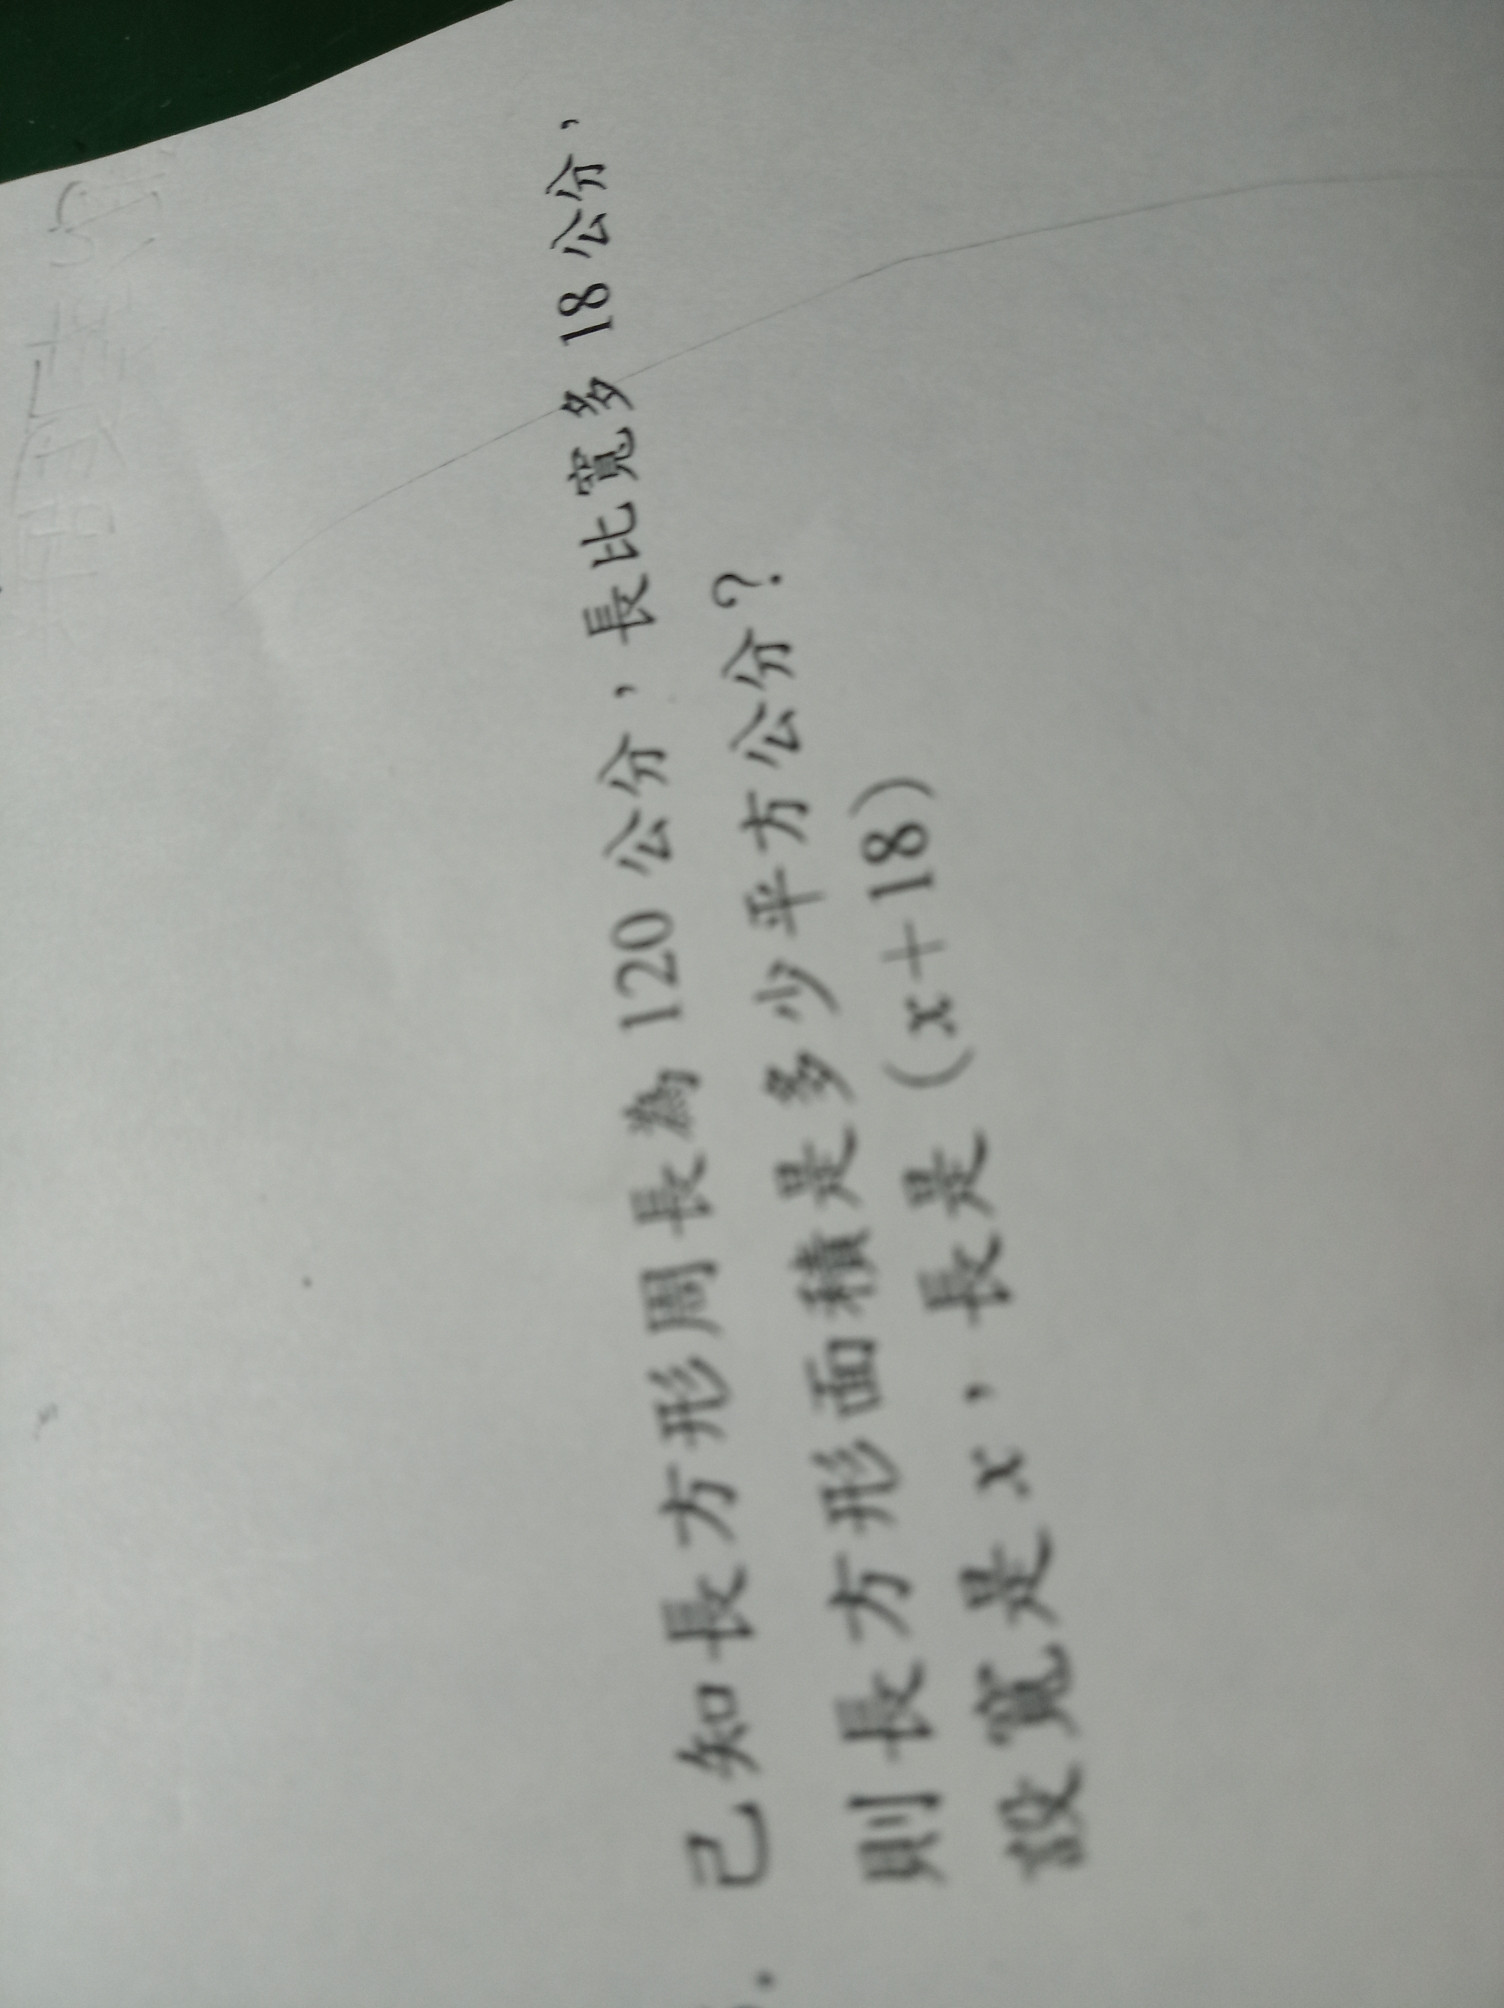 已知長方形周長為 120 公分，長比寬多 18 公分，
則長方形面積是多少平方公分？
設寬是 x，長是（x＋18）